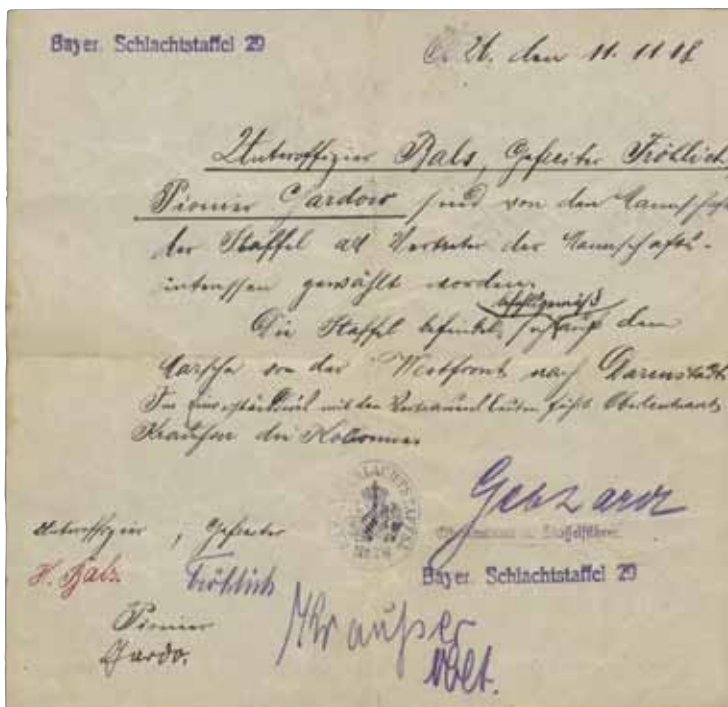 Bayer. Schlachtstaffel 29
O. U. den 11. 11 18
Unteroffizier Bals, Gefreiter Fröhlich,
Pionier Gardow sind von den Mannschaften
der Staffel als Vertreter der Mannschafts-
interessen gewählt worden.
befehlsgemäß
Die Staffel befindet sich auf dem
Marsche von der Westfront nach Darmstadt.
Im Einverständnis mit den Vertrauensleuten führt Oberleutnant
Kraußer die Kolonne.
Gebhardt
Oberleutnant u. Staffelführer.
Bayer. Schlachtstaffel 29
SCHLACHTSTAFFEL
Unteroffizier, Gefreiter
H. Bals. Fröhlich
Pionier
Gardo.
Kraußer
Oblt.